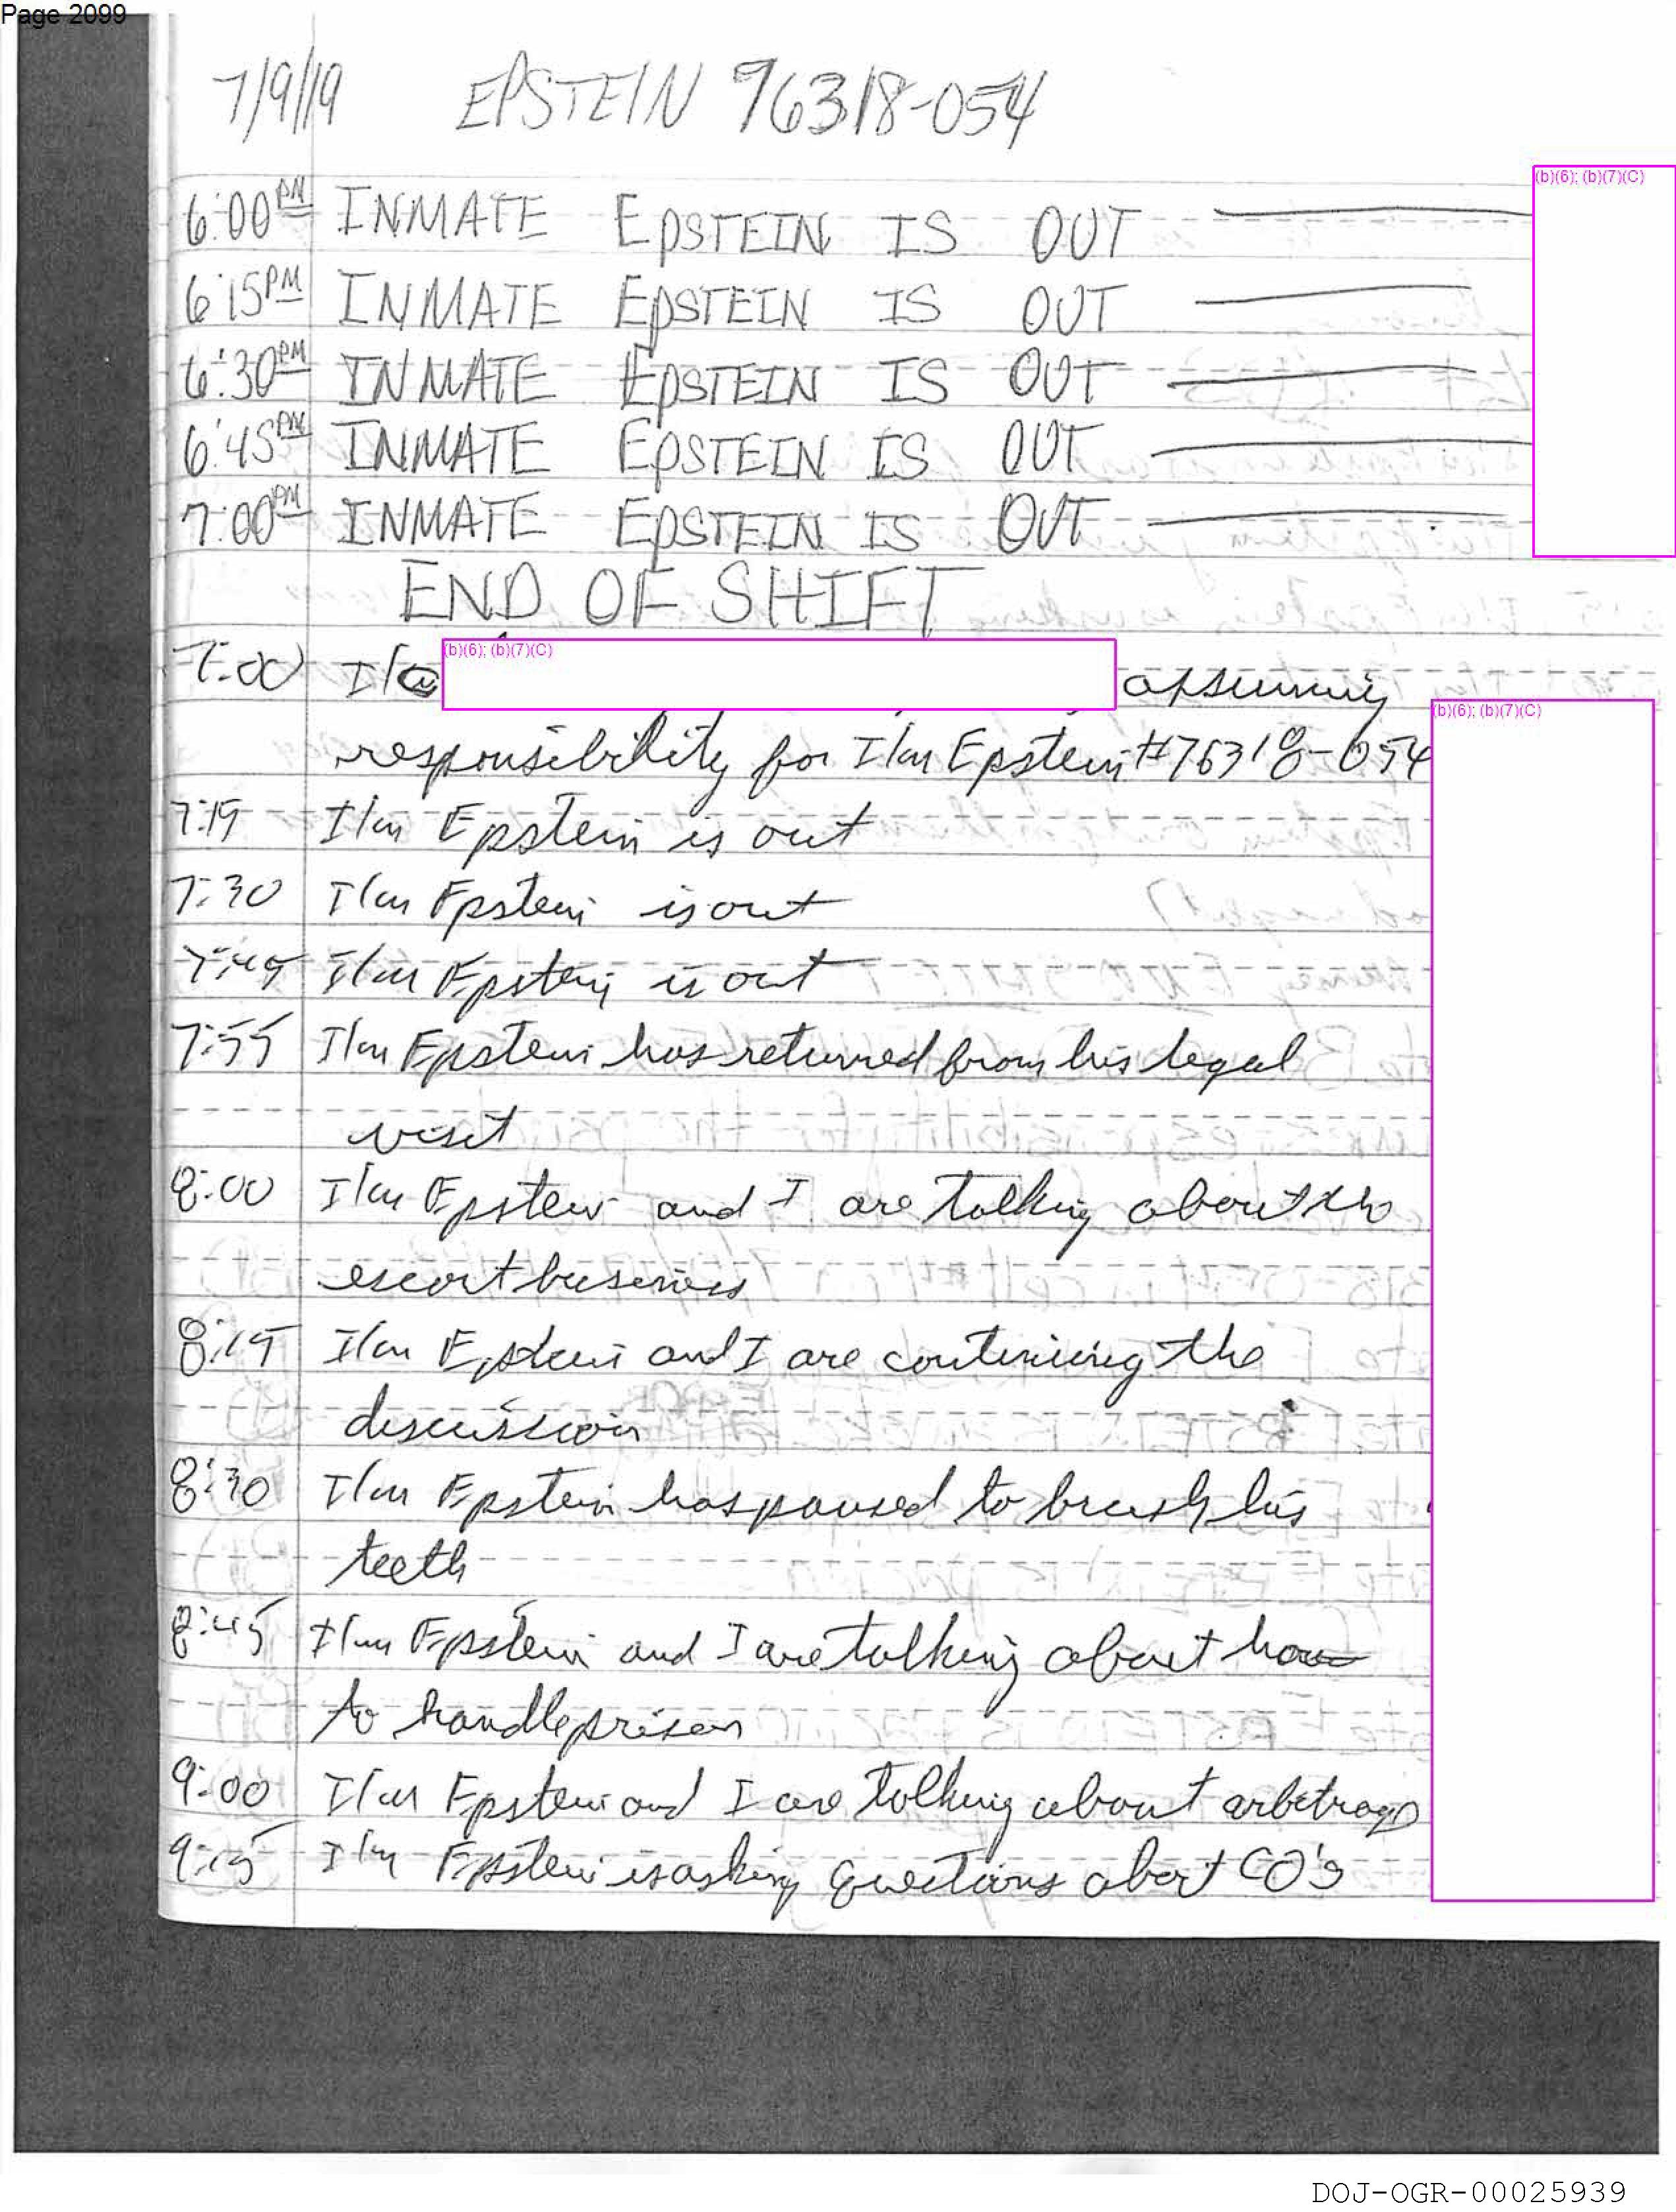 Page 2099
7/9/19 EPSTEIN 76318-054
6:00PM INMATE EPSTEIN IS OUT
(b)(6); (b)(7)(C)
6:15PM INMATE EPSTEIN IS OUT
6:30PM INMATE EPSTEIN IS OUT
6:45PM INMATE EPSTEIN IS OUT
7:00PM INMATE EPSTEIN IS OUT
END OF SHIFT
7:00 I/m (b)(6); (b)(7)(C) assuming
(b)(6); (b)(7)(C)
responsibility for I/m Epstein #76318-054
7:15 I/m Epstein is out
7:30 I/m Epstein is out
7:45 I/m Epstein is out
7:55 I/m Epstein has returned from his legal
visit
8:00 I/m Epstein and I are talking about the
escort business
8:15 I/m Epstein and I are continuing the
discussion
8:30 I/m Epstein has paused to brush his
teeth
8:45 I/m Epstein and I are talking about how
to handle prison
9:00 I/m Epstein and I are talking about arbitrage
9:15 I/m Epstein is asking questions about CO's
DOJ-OGR-00025939